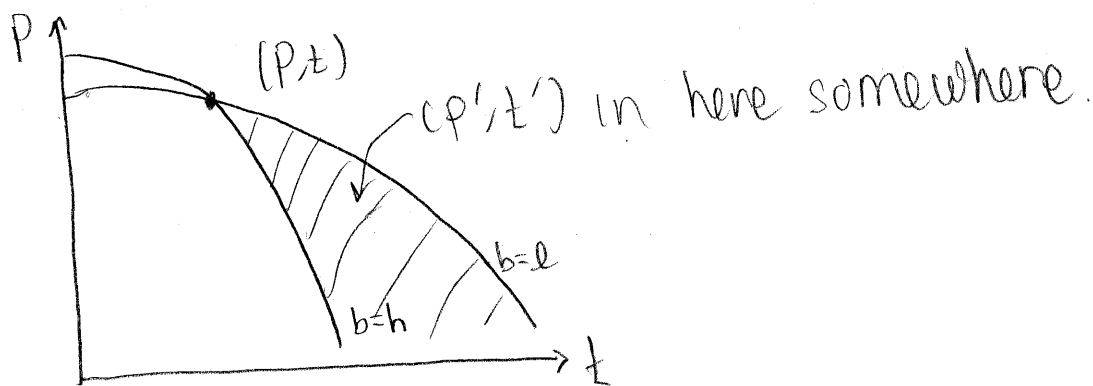 P
(P,t)
(p',t') in here somewhere.
b=l
b=h
t